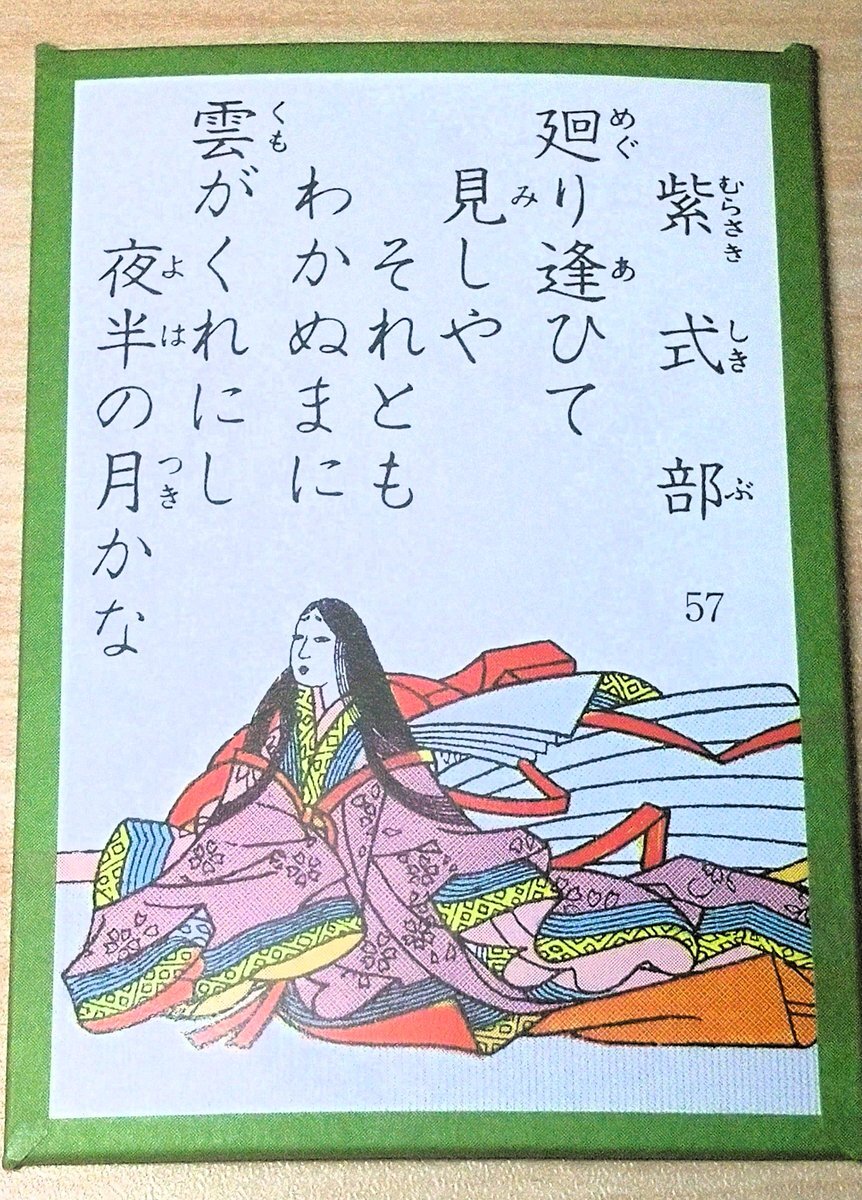 紫式部
むらさきしきぶ
57
廻り逢ひて
めぐあ
見しや
み
それとも
わかぬまに
雲がくれにし
くも
夜半の月かな
よはつき